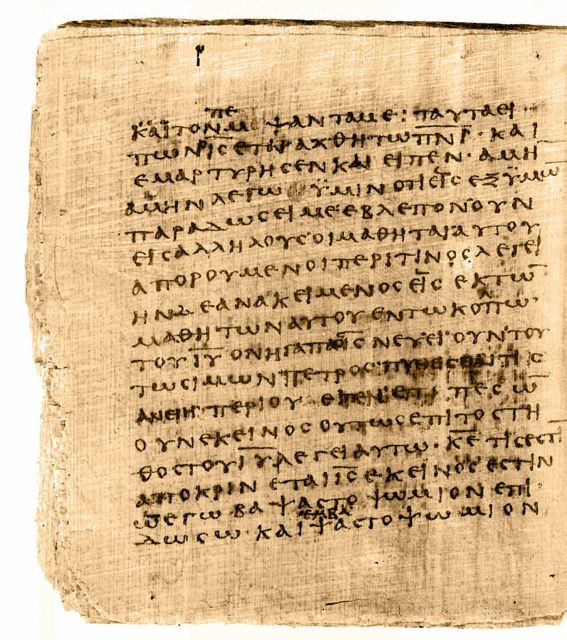 ΚΑΙ ΤΟΝ ΠΕΜΨΑΝΤΑ ΜΕ: ΤΑΥΤΑ ΕΙ
ΠΩΝ Ι̅Ϲ̅ ΕΤΑΡΑΧΘΗ ΤΩ Π̅Ν̅Ι̅· ΚΑΙ
ΕΜΑΡΤΥΡΗϹΕΝ ΚΑΙ ΕΙΠΕΝ· ΑΜΗ
ΑΜΗΝ ΛΕΓΩ ΫΜΙΝ ΟΤΙ ΕΙϹ ΕΞ ΫΜΩ̅
ΠΑΡΑΔΩϹΕΙ ΜΕ ΕΒΛΕΠΟΝ ΟΥΝ
ΕΙϹ ΑΛΛΗΛΟΥϹ ΟΙ ΜΑΘΗΤΑΙ ΑΥΤΟΥ
ΑΠΟΡΟΥΜΕΝΟΙ ΠΕΡΙ ΤΙΝΟϹ ΛΕΓΕΙ
ΗΝ ΔΕ ΑΝΑΚΕΙΜΕΝΟϹ ΕΙϹ ΕΚ ΤΩ̅
ΜΑΘΗΤΩΝ ΑΥΤΟΥ ΕΝ ΤΩ ΚΟΛΠΩ·
ΤΟΥ Ι̅Υ̅ ΟΝ ΗΓΑΠΑ Ι̅Ϲ̅ ΝΕΥΕΙ ΟΥΝ ΤΟΥ
ΤΩ ϹΙΜΩΝ ΠΕΤΡΟϹ ΠΥΘΕϹΘΑΙ ΤΙϹ
ΑΝ ΕΙΗ· ΠΕΡΙ ΟΥ ΕΙΠΕΝ· ΕΠΙΠΕϹΩ̅
ΟΥΝ ΕΚΕΙΝΟϹ ΟΥΤΩϹ ΕΠΙ ΤΟ ϹΤΗ
ΘΟϹ ΤΟΥ Ι̅Υ̅ ΛΕΓΕΙ ΑΥΤΩ· Κ̅Ε̅ ΤΙϹ ΕϹΤΙ̅
ΑΠΟΚΡΙΝΕΤΑΙ Ι̅Ϲ̅ ΕΚΕΙΝΟϹ ΕϹΤΙΝ
Ω ΕΓΩ ΒΑΨΑϹ ΤΟ ΨΩΜΙΟΝ ΕΠΙ
ΔΩϹΩ· ΚΑΙ ΕΜΒΑΨΑϹ ΤΟ ΨΩΜΙΟΝ